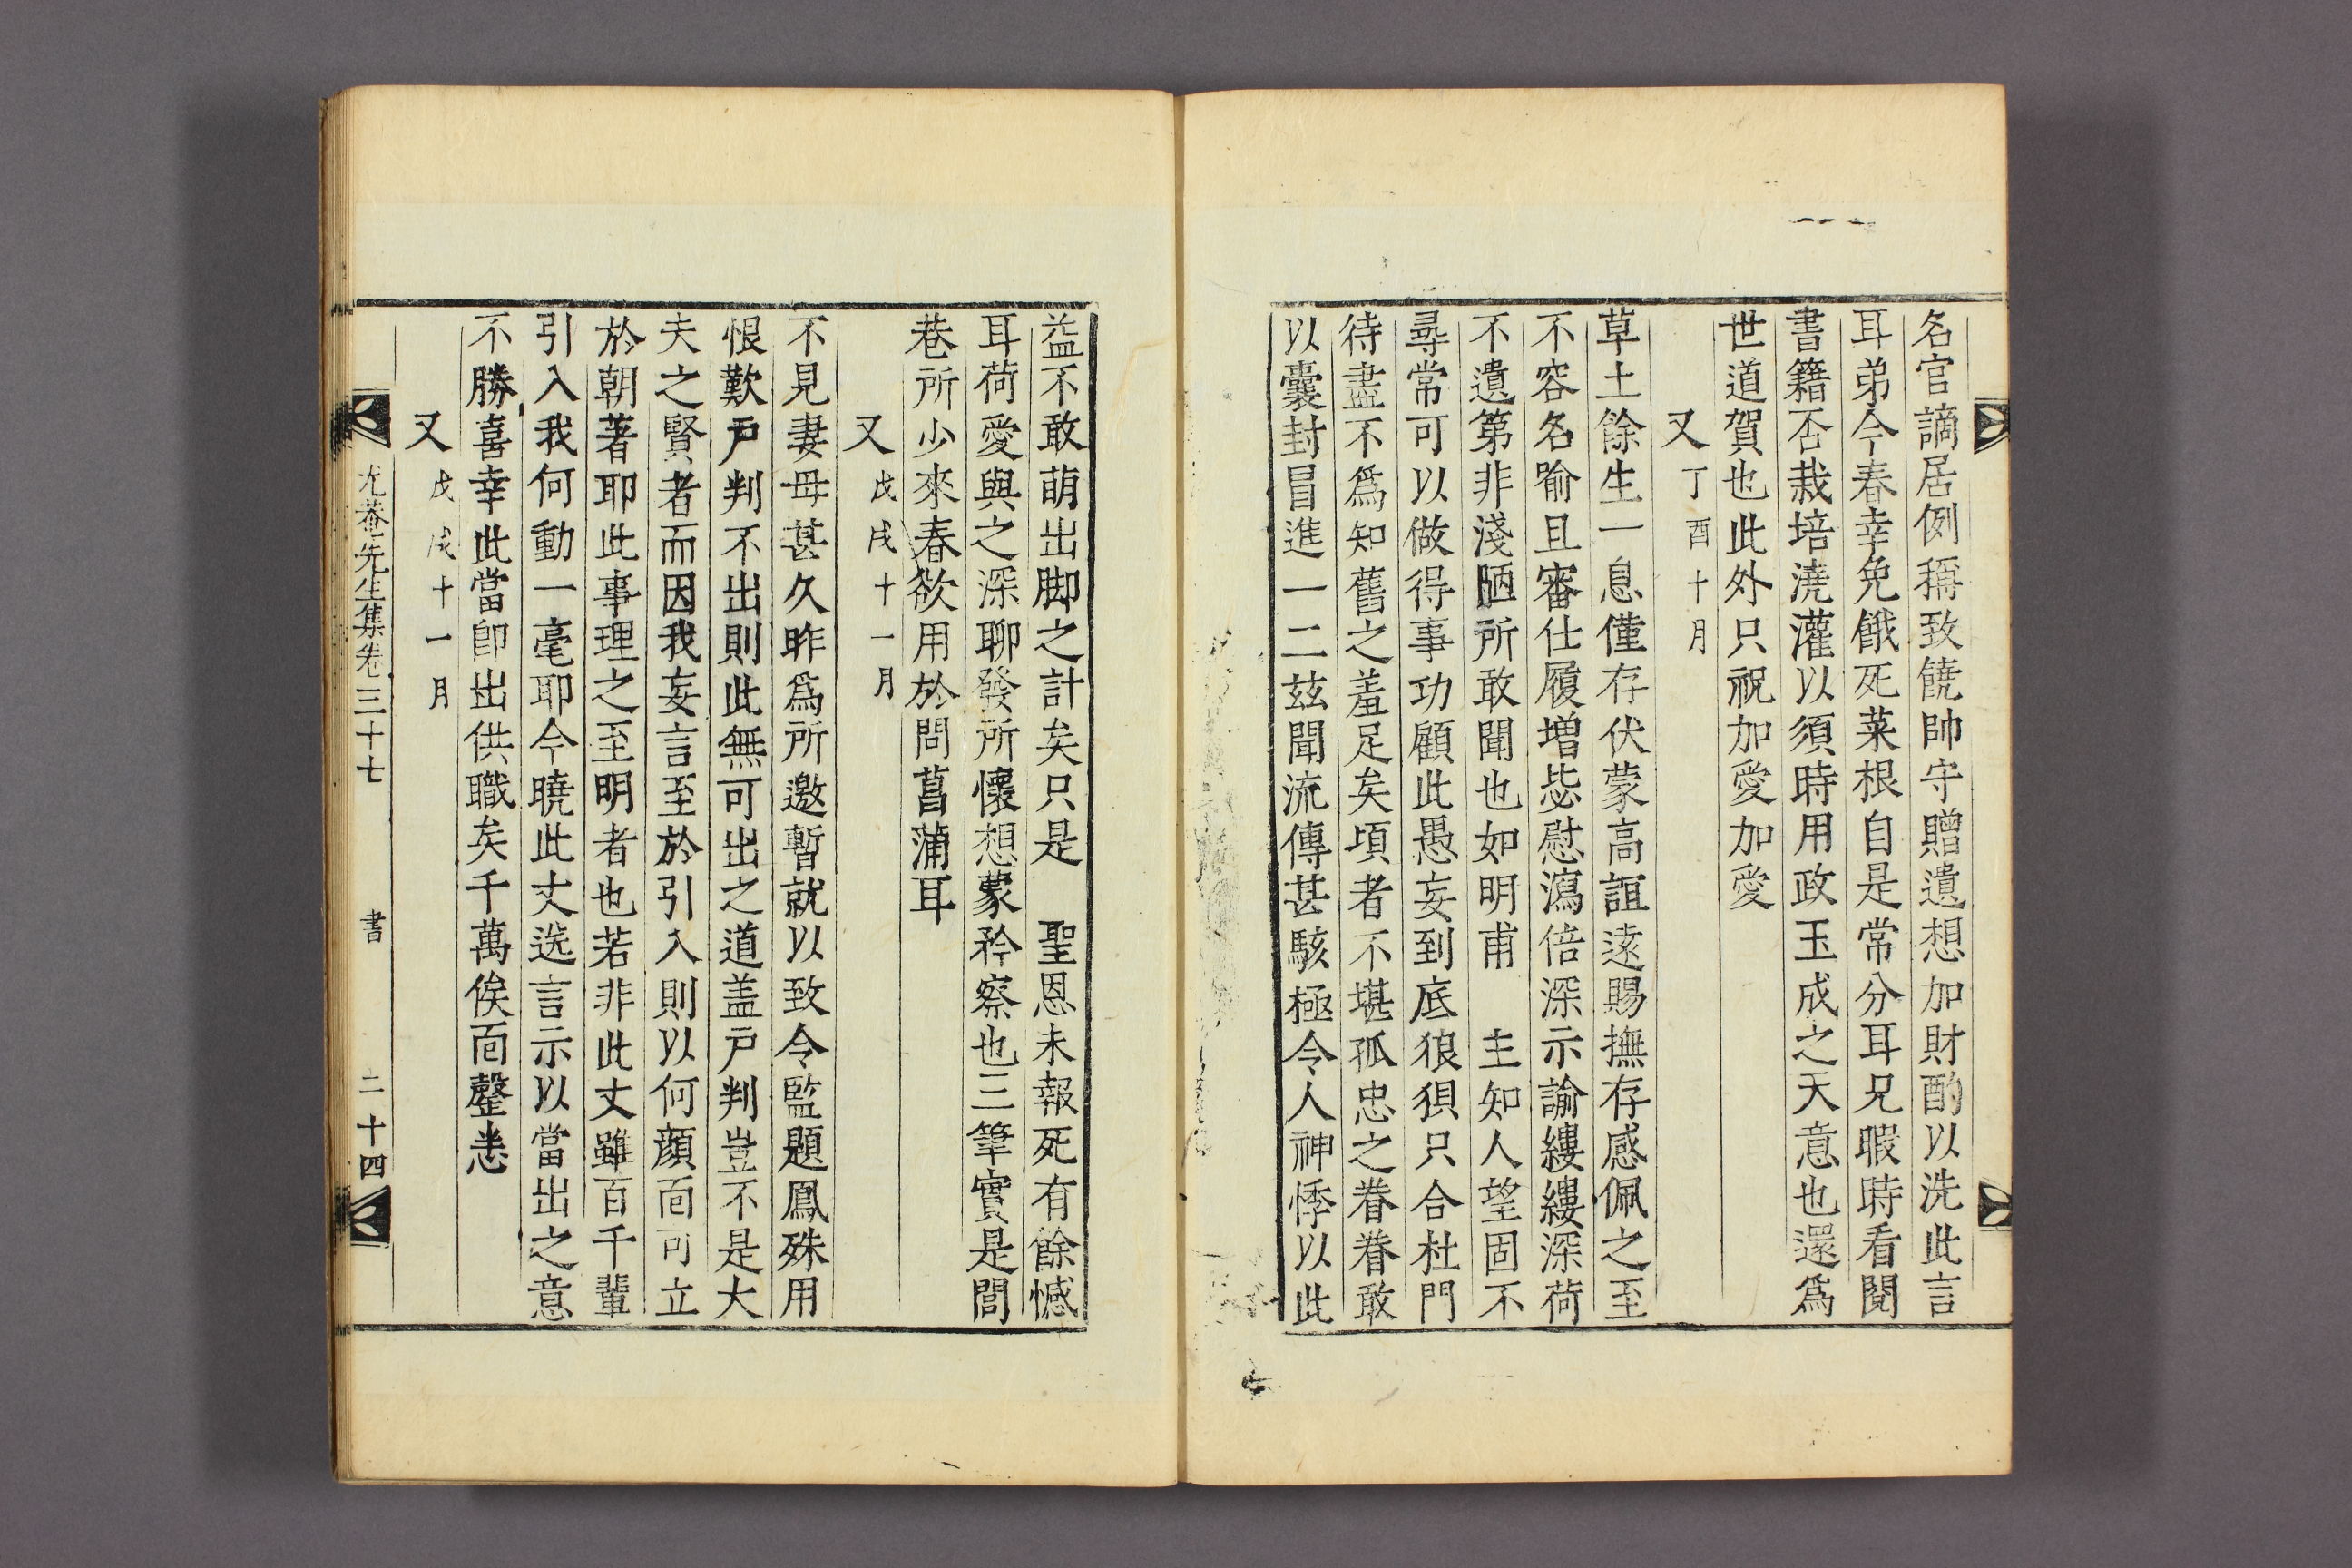 名官謫居例稱致饒帥守贈遺想加財酌以洗此言
耳弟今春幸免餓死菜根自是常分耳兄暇時看閱
書籍否栽培澆灌以須時用政玉成之天意也還爲
世道賀也此外只祝加愛加愛
又 丁酉十月
草土餘生一息僅存伏蒙高誼遠賜撫存感佩之至
不容名喻且審仕履增毖慰瀉倍深示諭縷縷深荷
不遺第非淺陋所敢聞也如明甫 主知人望固不
尋常可以做得事功顧此愚妄到底狼狽只合杜門
待盡不爲知舊之羞足矣頃者不堪孤忠之眷眷敢
以囊封冒進一二玆聞流傳甚駭極令人神悸以此
益不敢萌出脚之計矣只是 聖恩未報死有餘憾
耳荷愛與之深聊發所懷想蒙矜察也三筆實是閭
巷所少來春欲用於問菖蒲耳
又 戊戌十一月
不見妻母甚久昨爲所邀暫就以致令監題鳳殊用
恨歎戶判不出則此無可出之道盖戶判豈不是大
夫之賢者而因我妄言至於引入則以何顔面可立
於朝著耶此事理之至明者也若非此丈雖百千輩
引入我何動一毫耶今曉此丈送言示以當出之意
不勝喜幸此當卽出供職矣千萬俟面罄恙
又 戊戌十一月
尤菴先生集卷三十七 書 二十四